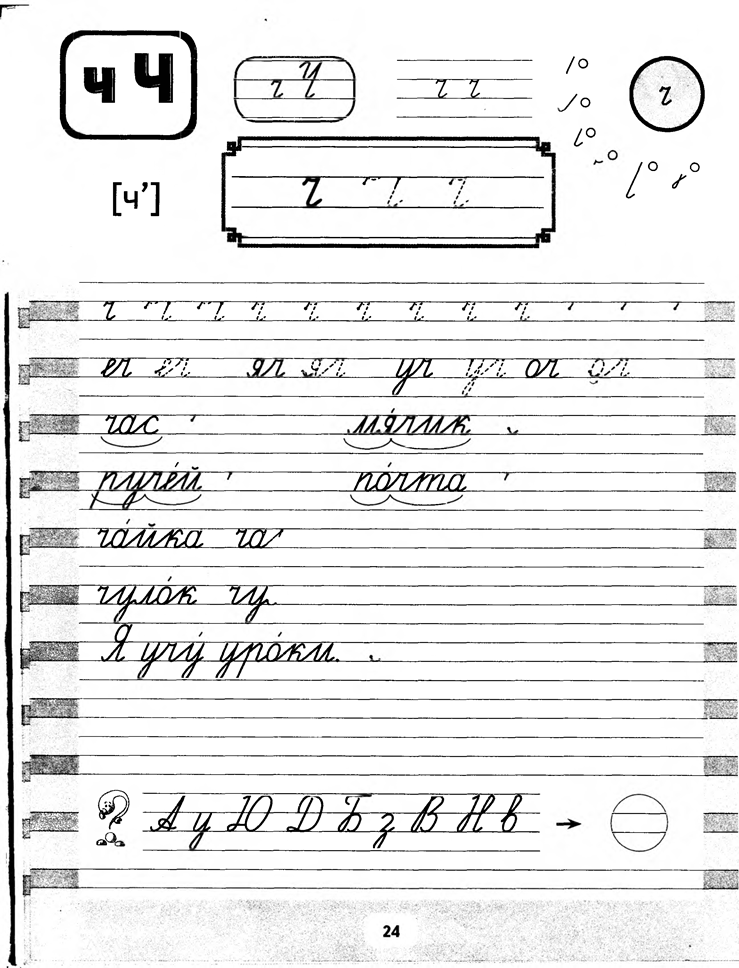 ч Ч
ч Ч
ч ч
ч
[ч’]
ч ч ч
ч ч ч ч ч ч ч ч ч
еч еч яч яч уч уч оч оч
час мя́чик
руче́й по́чта
ча́йка ча
чуло́к чу
Я учу́ уро́ки.
А у Ю Д Б з В Н в →
24